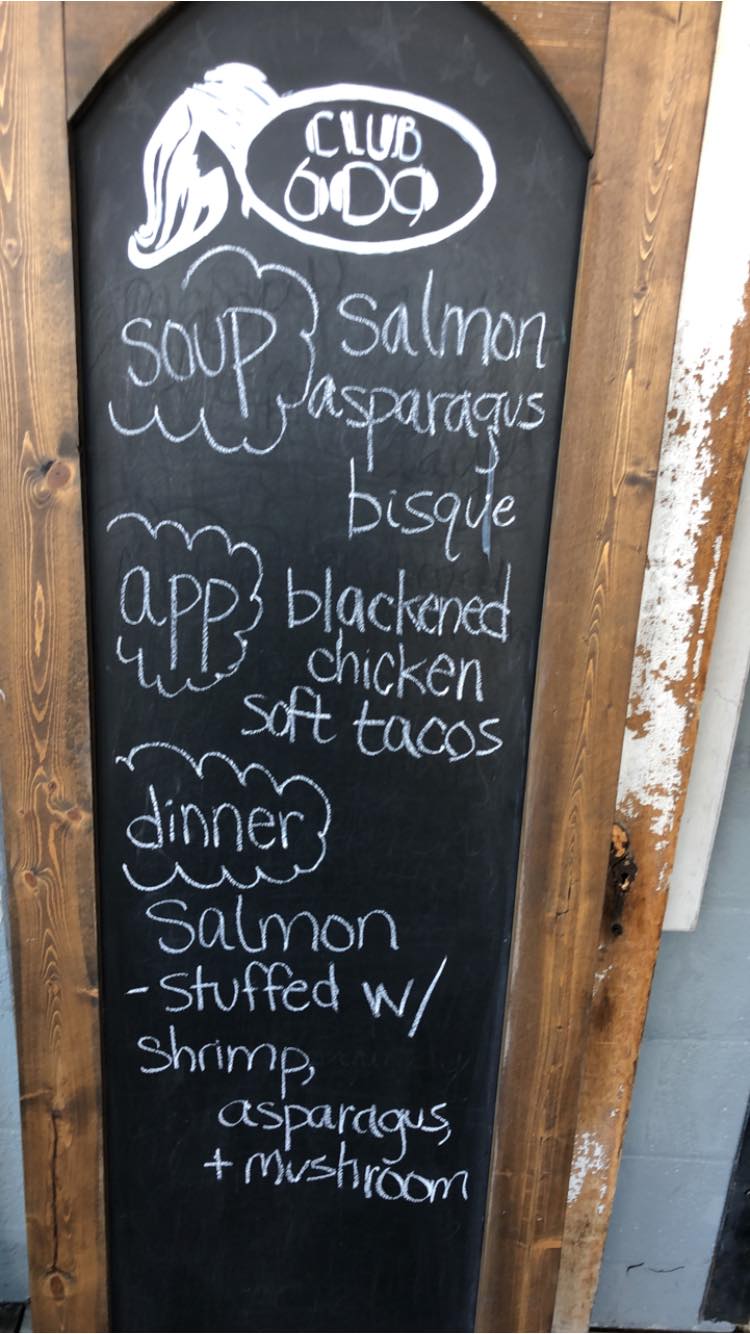 CLUB
609
soup salmon
asparagus
bisque
app blackened
chicken
soft tacos
dinner
Salmon
- stuffed w/
shrimp,
asparagus,
+ mushroom